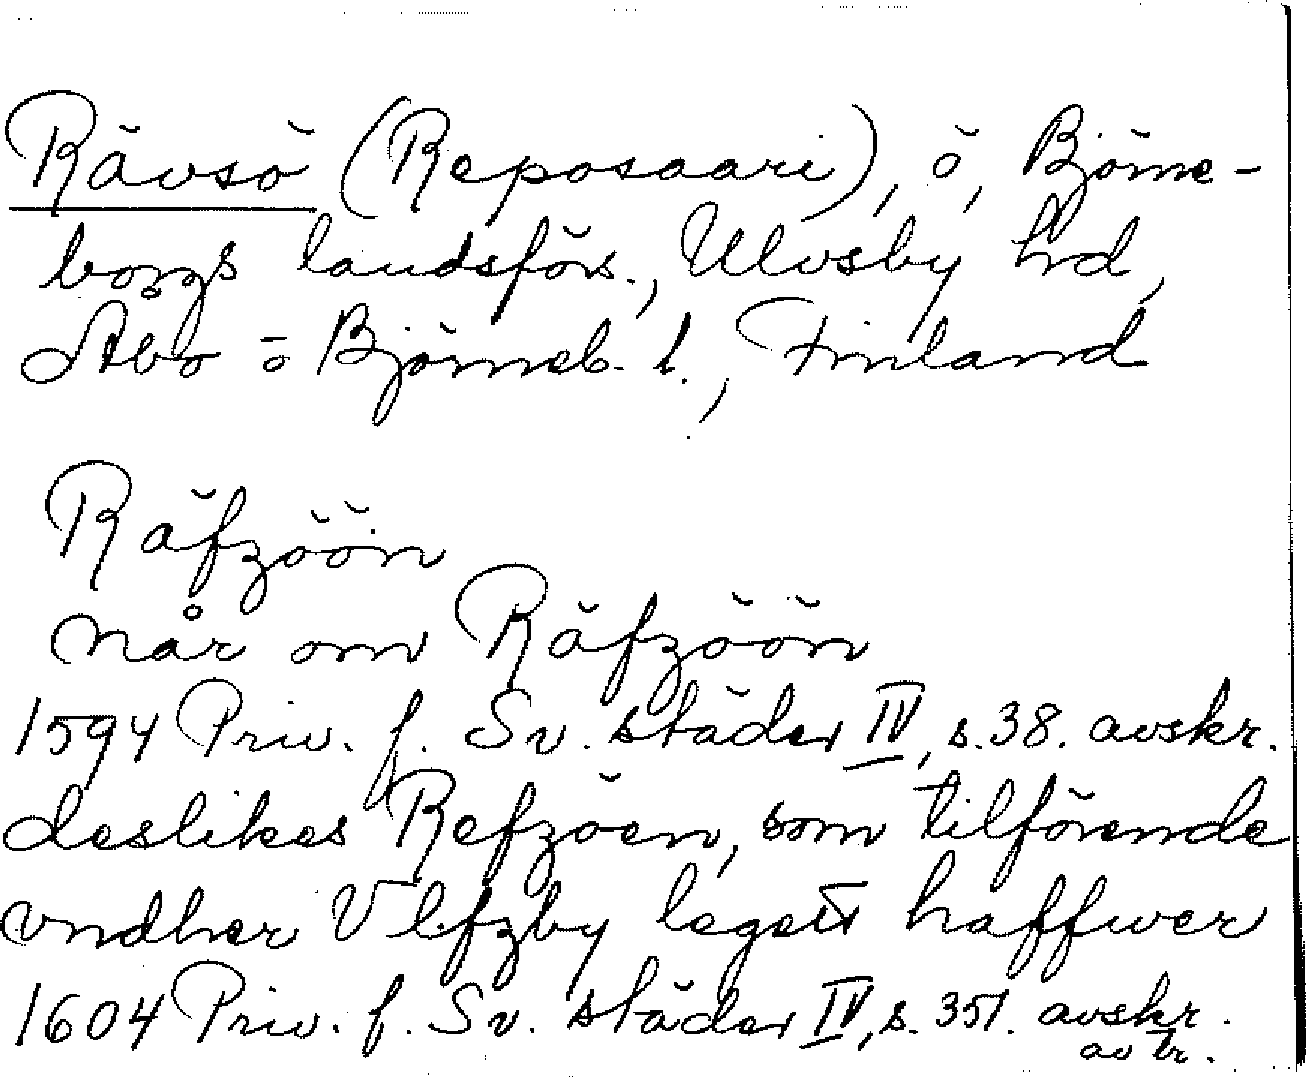 Rävsö (Reposaari), ö, Björne-
borgs landsförs., Ulvsby hd,
Åbo o Björneb. l., Finland
Räfzöön
når om Räfzöön
1594 Priv. f. Sv. städer IV, s. 38. avskr.
deslikes Refzöen, som tilförende
vndher Vlfzby legett haffwer
1604 Priv. f. Sv. städer IV, s. 351. avskr.
av tr.